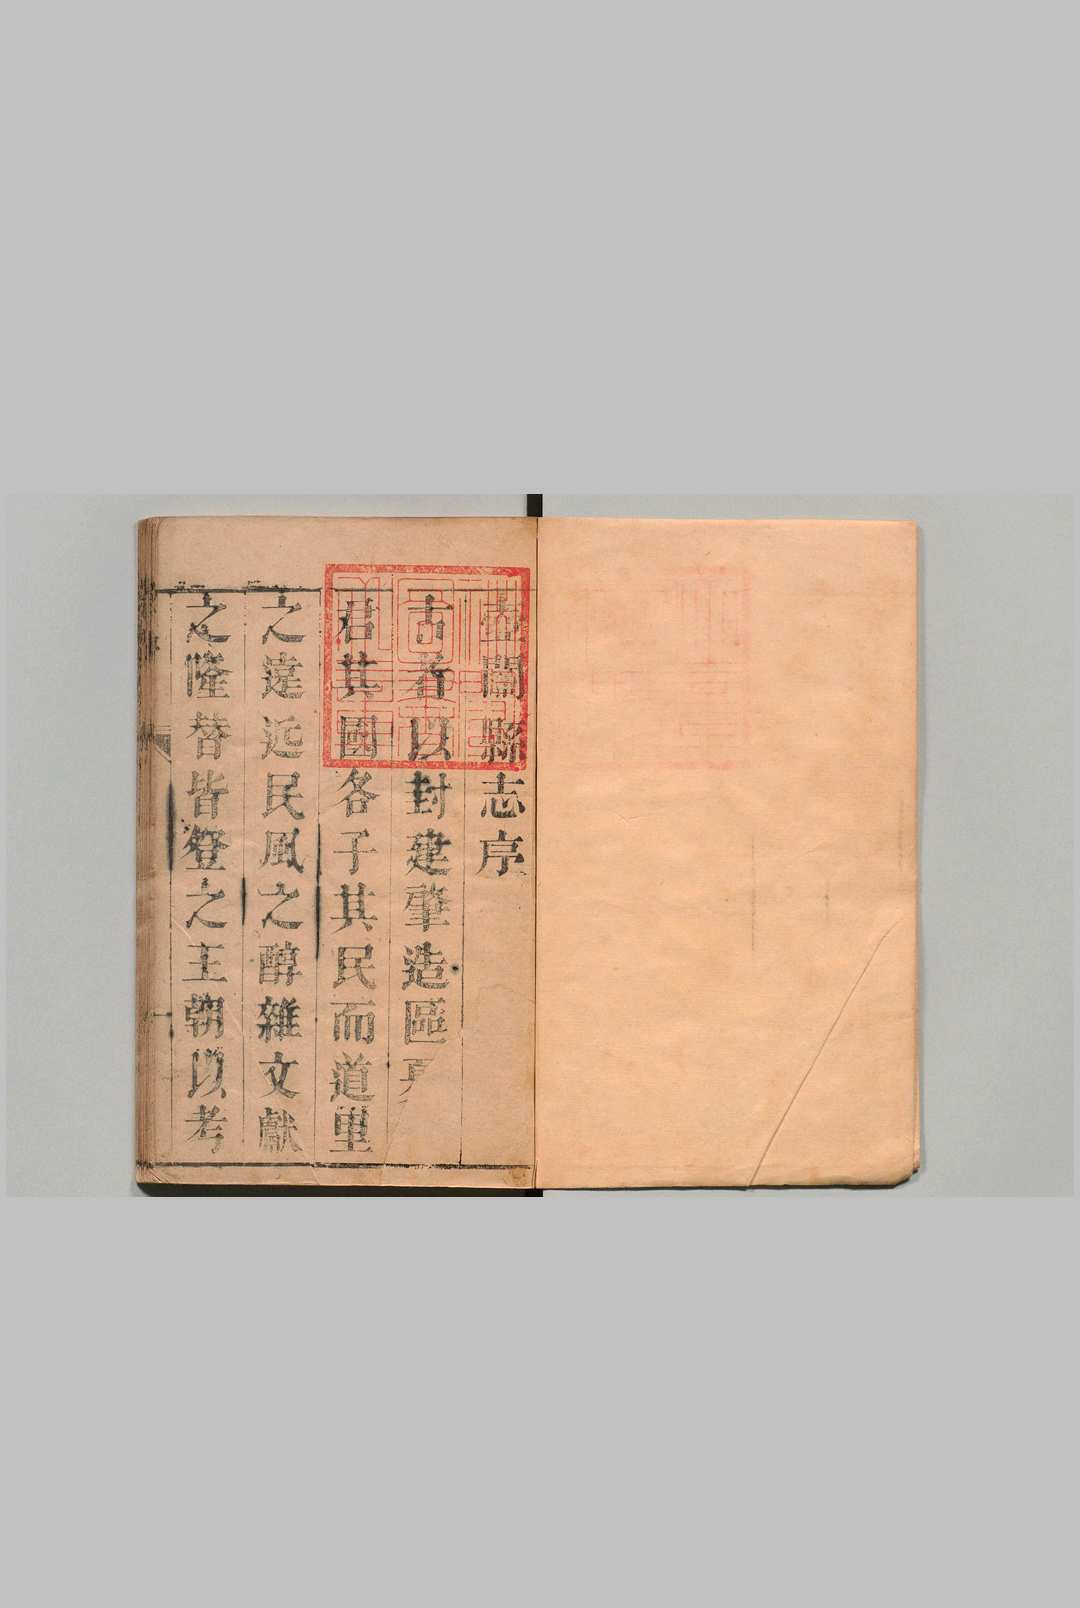 壺關縣志序
古者以封建肇造區
君其國各子其民而道里
之遠近民風之醇雜文獻
之隆替皆登之王朝以考